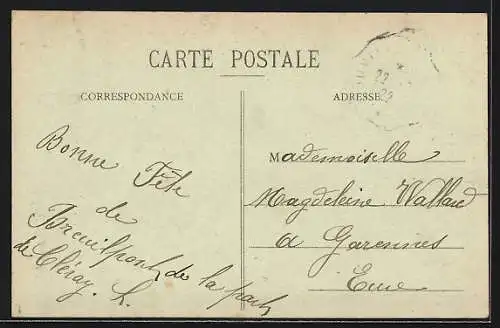 CARTE POSTALE
CORRESPONDANCE
ADRESSE
Bonne
Fête
de
Breuilpont, de la part
de Cléray. L.
Mademoiselle
Magdeleine Wallard
à Garennes
Eure
22
22